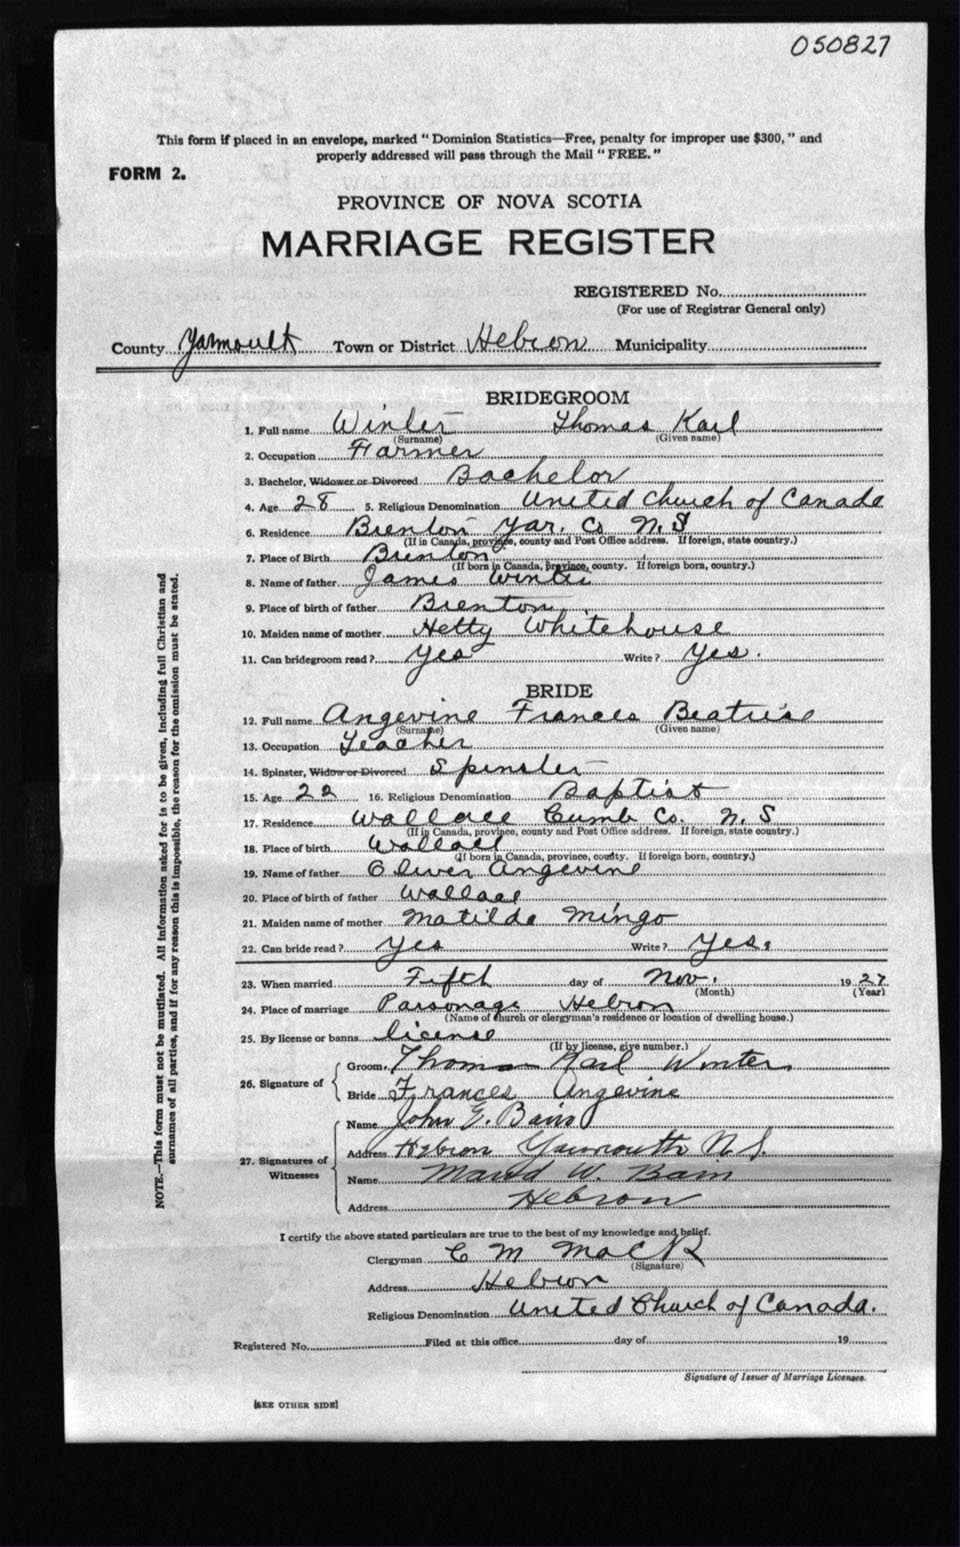 050827
This form if placed in an envelope, marked “ Dominion Statistics—Free, penalty for improper use $300, ” and
properly addressed will pass through the Mail “ FREE. ”
FORM 2.
PROVINCE OF NOVA SCOTIA
MARRIAGE REGISTER
REGISTERED No.
(For use of Registrar General only)
County Yarmouth Town or District Hebron Municipality
BRIDEGROOM
1. Full name Winter Thomas Karl
(Surname) (Given name)
2. Occupation Farmer
3. Bachelor, Widower or Divorced Bachelor
4. Age 28 5. Religious Denomination United Church of Canada
6. Residence Brenton Yar. Co N.S
(If in Canada, province, county and Post Office address. If foreign, state country.)
7. Place of Birth Brenton
(If born in Canada, province, county. If foreign born, country.)
8. Name of father James Winter
9. Place of birth of father Brenton
10. Maiden name of mother Hetty Whitehouse
11. Can bridegroom read? Yes Write? Yes.
BRIDE
12. Full name Angevine Frances Beatrice
(Surname) (Given name)
13. Occupation Teacher
14. Spinster, Widow or Divorced Spinster
15. Age 22 16. Religious Denomination Baptist
17. Residence Wallace Cumb Co. N. S
(If in Canada, province, county and Post Office address. If foreign, state country.)
18. Place of birth Wallace
(If born in Canada, province, county. If foreign born, country.)
19. Name of father Oliver Angevine
20. Place of birth of father Wallace
21. Maiden name of mother Matilda Mingo
22. Can bride read? Yes Write? Yes.
23. When married Fifth day of Nov. 1927
(Month) (Year)
24. Place of marriage Parsonage Hebron
(Name of church or clergyman's residence or location of dwelling house.)
25. By license or banns license
(If by license, give number.)
26. Signature of
Groom Thomas Karl Winter
Bride Frances Angevine
27. Signatures of Witnesses
Name John E. Bain
Address Hebron Yarmouth N.S.
Name Maud W. Bain
Address Hebron
I certify the above stated particulars are true to the best of my knowledge and belief.
Clergyman C M Mack
(Signature)
Address Hebron
Religious Denomination United Church of Canada.
Registered No. Filed at this office day of 19
Signature of Issuer of Marriage Licenses.
[SEE OTHER SIDE]
NOTE.—This form must not be mutilated. All information asked for is to be given, including full Christian and
surnames of all parties, and if for any reason this is impossible, the reason for the omission must be stated.